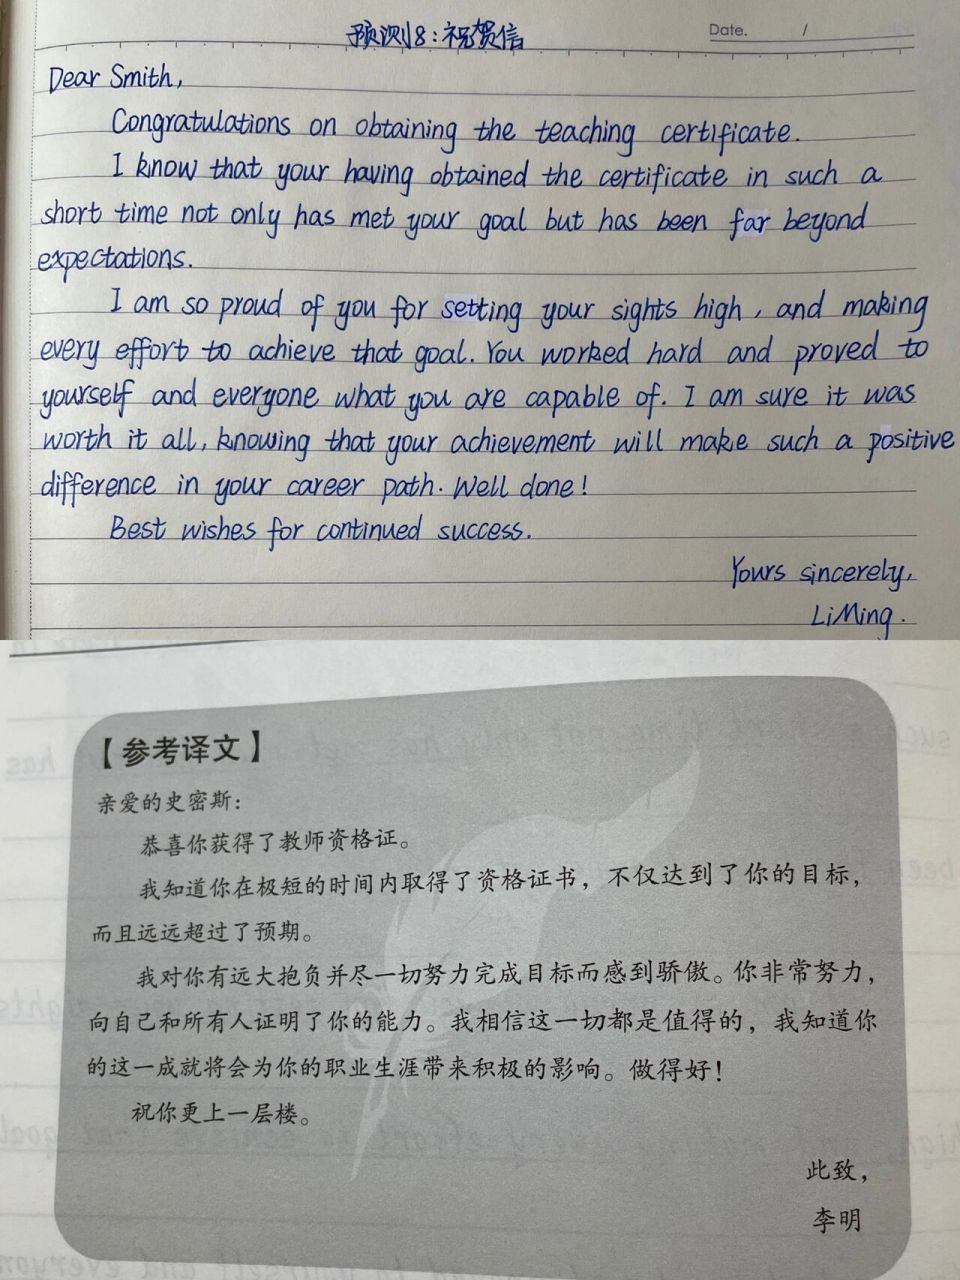 预测8:祝贺信
Date. /
Dear Smith,
Congratulations on obtaining the teaching certificate.
I know that your having obtained the certificate in such a
short time not only has met your goal but has been far beyond
expectations.
I am so proud of you for setting your sights high, and making
every effort to achieve that goal. You worked hard and proved to
yourself and everyone what you are capable of. I am sure it was
worth it all, knowing that your achievement will make such a positive
difference in your career path. Well done!
Best wishes for continued success.
Yours sincerely,
LiMing.
【参考译文】
亲爱的史密斯:
恭喜你获得了教师资格证。
我知道你在极短的时间内取得了资格证书，不仅达到了你的目标，
而且远远超过了预期。
我对你有远大抱负并尽一切努力完成目标而感到骄傲。你非常努力，
向自己和所有人证明了你的能力。我相信这一切都是值得的，我知道你
的这一成就将会为你的职业生涯带来积极的影响。做得好!
祝你更上一层楼。
此致，
李明